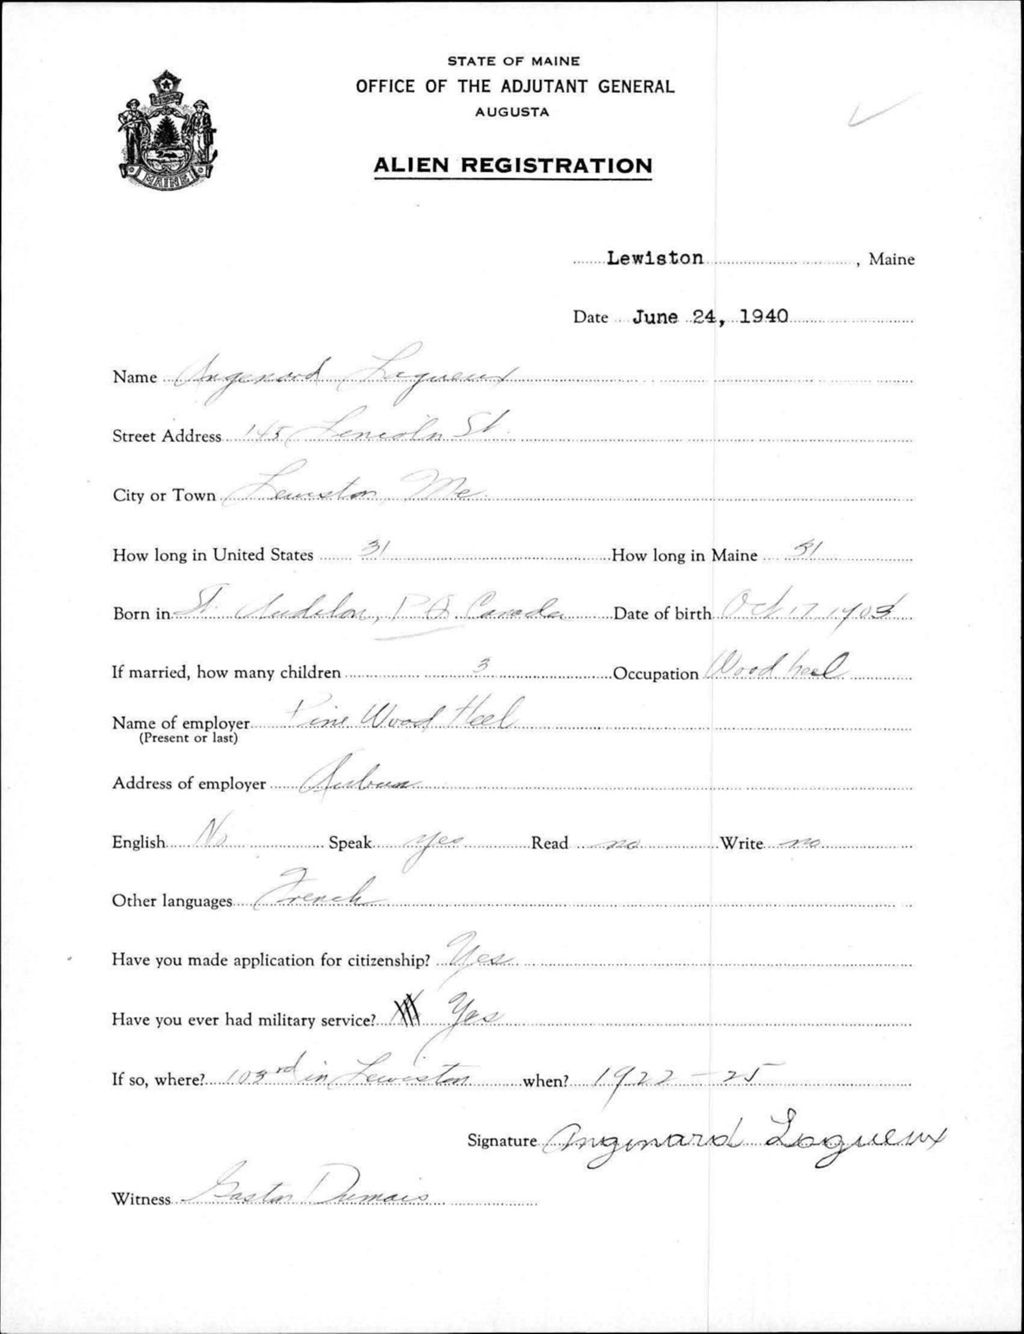 STATE OF MAINE
OFFICE OF THE ADJUTANT GENERAL
AUGUSTA
ALIEN REGISTRATION
MAINE
Lewiston, Maine
Date June 24, 1940
Name Angenard Lagueux
Street Address 145 Lincoln St.
City or Town Lewiston Me.
How long in United States 31 How long in Maine 31
Born in St. P.Q. Canada Date of birth Oct 17 1903
If married, how many children 3 Occupation Wood heel
Name of employer Pine Wood Heel
(Present or last)
Address of employer Auburn
English No Speak yes Read no Write no
Other languages French
Have you made application for citizenship? Yes
Have you ever had military service? Yes
If so, where? 103rd in Lewiston when? 1922-25
Signature Angenard Lagueux
Witness Gaston Dumais